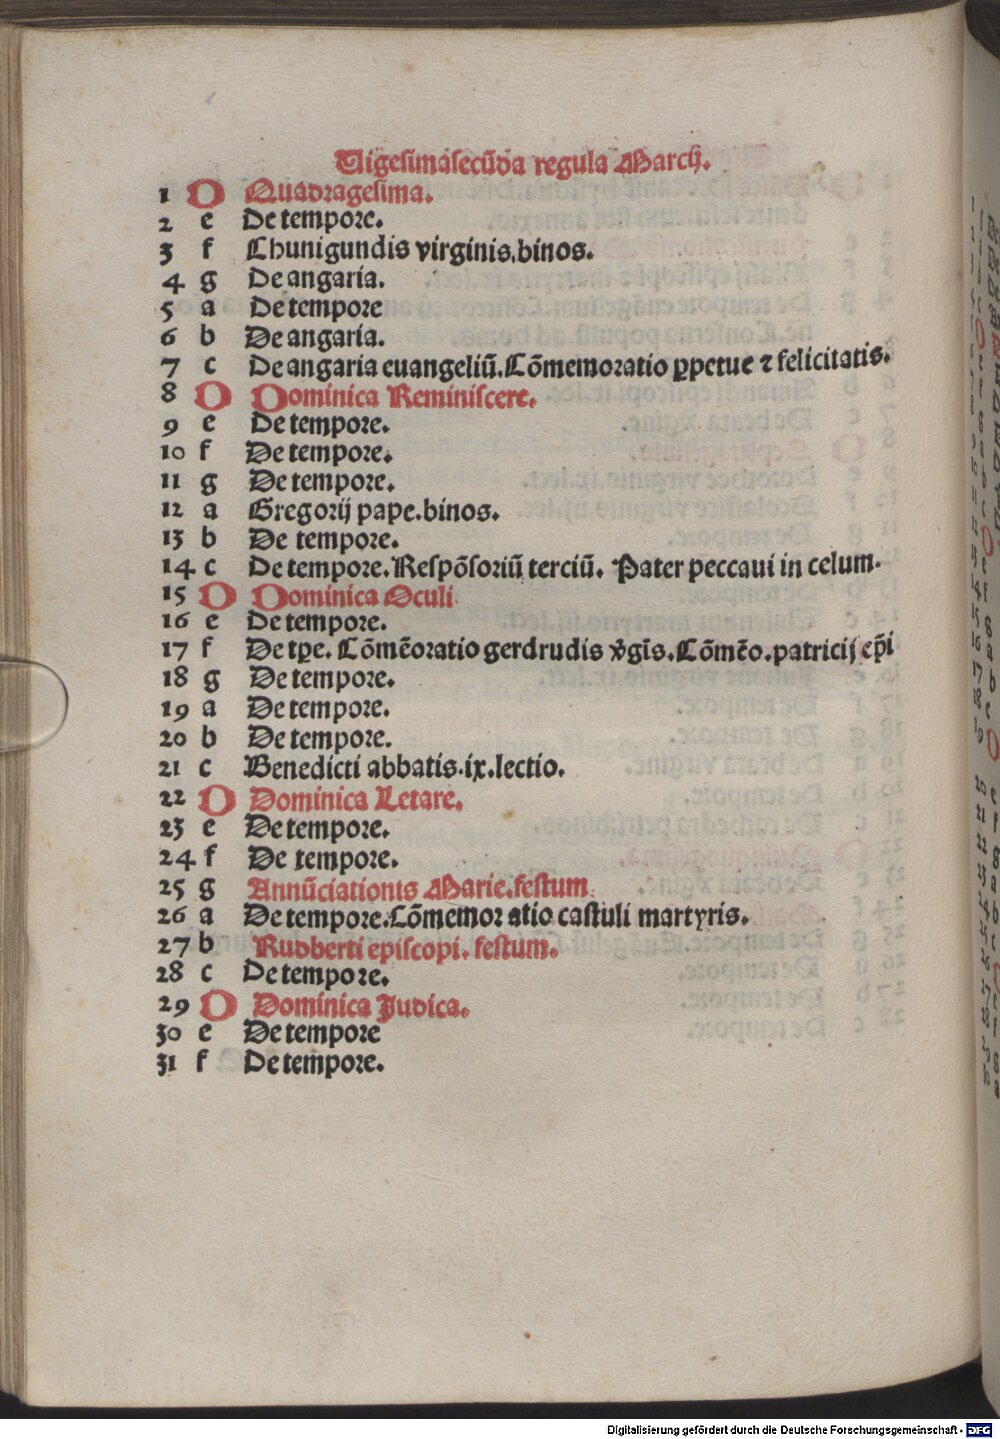 Vigesimasecūda regula Marcij.
1 D Quadragesima.
2 e De tempore.
3 f Chunigundis virginis.binos.
4 g De angaria.
5 a De tempore
6 b De angaria.
7 c De angaria euangeliū.Cōmemoratio ꝑpetue ⁊ felicitatis.
8 D Dominica Reminiscere.
9 e De tempore.
10 f De tempore.
11 g De tempore.
12 a Gregorij pape.binos.
13 b De tempore.
14 c De tempore.Respōsoriū terciū. Pater peccaui in celum.
15 D Dominica Oculi
16 e De tempore.
17 f De tꝑe. Cōmēoratio gerdrudis v̾gīs.Cōmēo.patricij ep̄i
18 g De tempore.
19 a De tempore.
20 b De tempore.
21 c Benedicti abbatis.ix.lectio.
22 D Dominica Letare.
23 e De tempore.
24 f De tempore.
25 g Annūciationis Marie.festum
26 a De tempore.Cōmemoratio castuli martyris.
27 b Rudberti episcopi. festum.
28 c De tempore.
29 D Dominica Judica.
30 e De tempore
31 f De tempore.
Digitalisierung gefördert durch die Deutsche Forschungsgemeinschaft - DFG